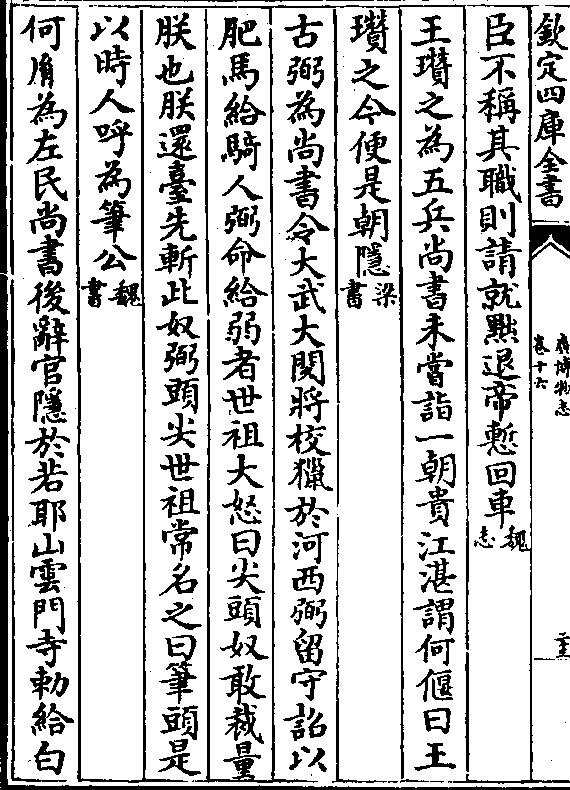 欽定四庫全書
廣博物志
卷十六
臣不稱其職則請就黜退帝慙回車魏志
王瓚之為五兵尚書未嘗詣一朝貴江湛謂何偃曰王
瓚之今便是朝隱梁書
古弼為尚書令大武大閱將校獵於河西弼留守詔以
肥馬給騎人弼命給弱者世祖大怒曰尖頭奴敢裁量
朕也朕還臺先斬此奴弼頭尖世祖常名之曰筆頭是
以時人呼為筆公魏書
何胤為左民尚書後辭官隱於若耶山雲門寺勅給白